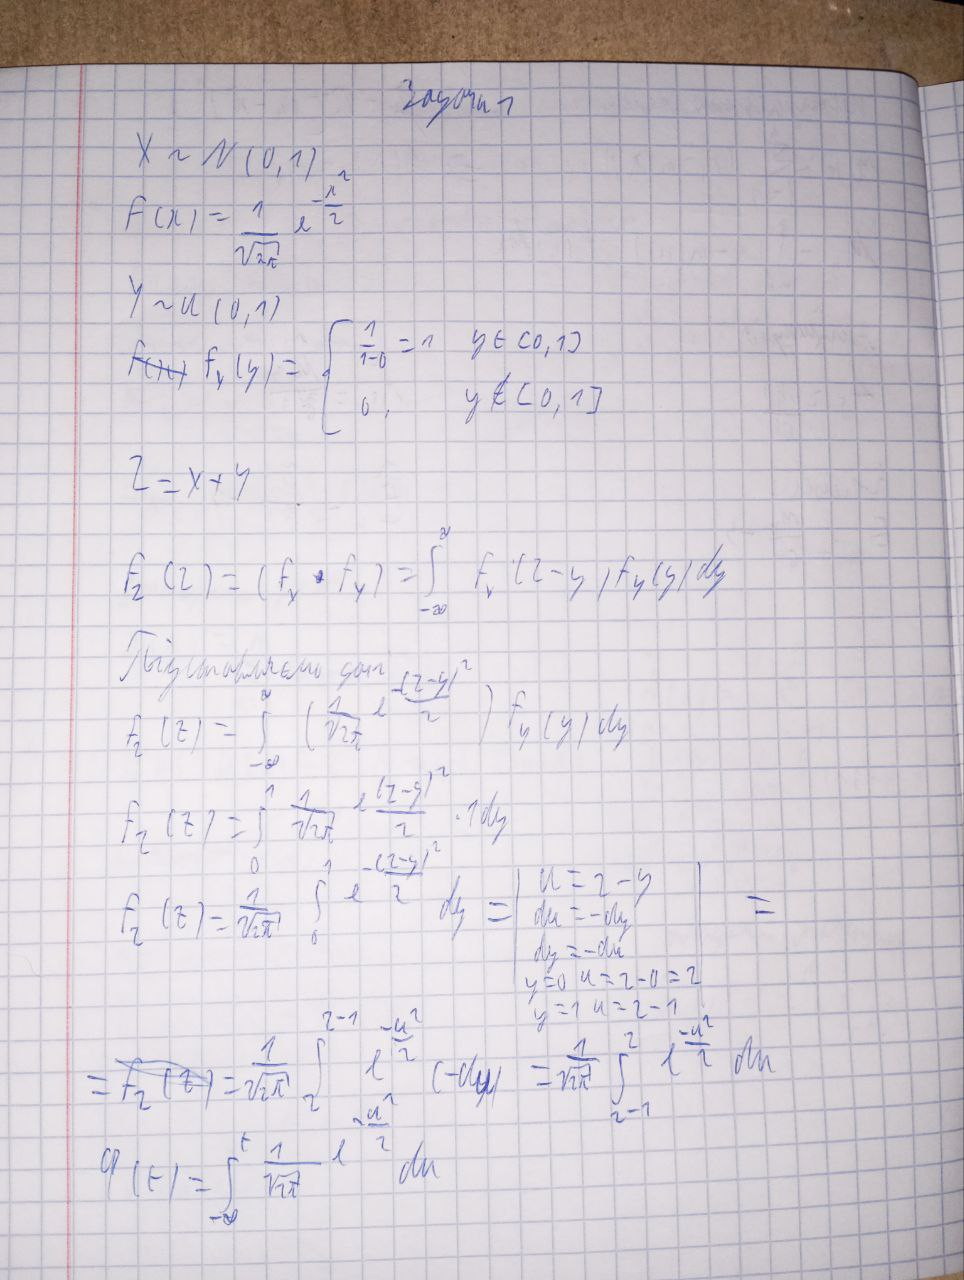 Задача 1
X ~ N(0,1)
f(x) = 1/√2π e^(-x²/2)
Y ~ U(0,1)
f_Y(y) = { 1/(1-0) = 1 y ∈ [0,1]
0, y ∉ [0,1]
Z = X + Y
f_Z(z) = (f_X * f_Y) = ∫_{-∞}^{∞} f_X(z-y) f_Y(y) dy
Підставляємо
f_Z(z) = ∫_{-∞}^{∞} (1/√2π e^(-(z-y)²/2)) f_Y(y) dy
f_Z(z) = ∫_0^1 1/√2π e^((z-y)²/2) · 1 dy
f_Z(z) = 1/√2π ∫_0^1 e^(-(z-y)²/2) dy = | u = z-y
du = -dy
dy = -du
y=0 u = z-0 = z
y=1 u = z-1 | =
= f_Z(z) = 1/√2π ∫_z^{z-1} e^(-u²/2) (-du) = 1/√2π ∫_{z-1}^z e^(-u²/2) du
φ(t) = ∫_{-∞}^t 1/√2π e^(-u²/2) du